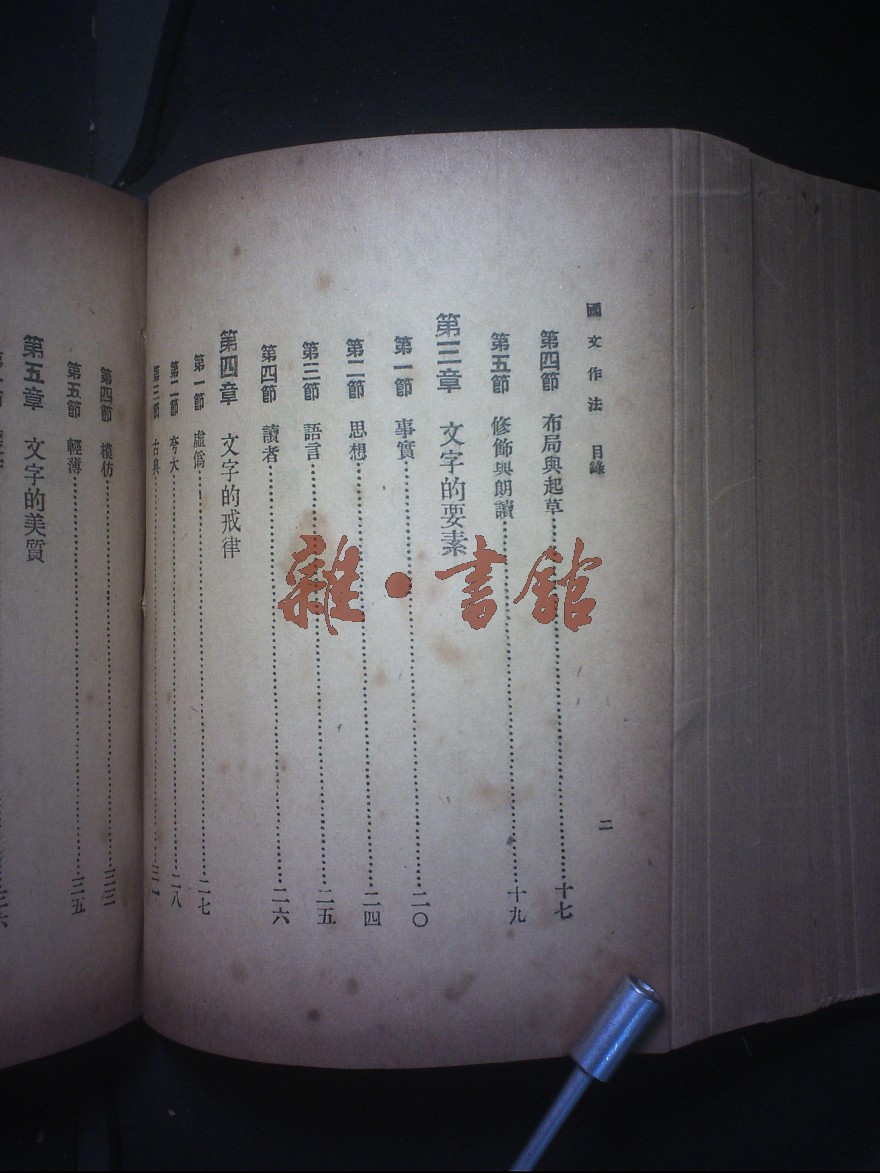 國文作法 目錄 二
第四節 布局與起草 十七
第五節 修飾與朗讀 十九
第三章 文字的要素
第一節 事實 二〇
第二節 思想 二四
第三節 語言 二五
第四節 讀者 二六
第四章 文字的戒律
第一節 虛僞 二七
第二節 夸大 二八
第三節 古典
第四節 模仿 三三
第五節 輕薄 三五
第五章 文字的美質
雜·書館